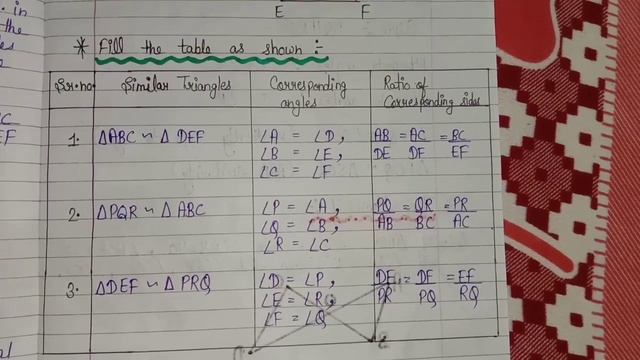 E F
* Fill the table as shown :-
Sr.no. Similar Triangles Corresponding angles Ratio of Corresponding sides
1. ΔABC ∽ ΔDEF ∠A = ∠D, AB/DE = AC/DF = BC/EF
∠B = ∠E,
∠C = ∠F
2. ΔPQR ∽ ΔABC ∠P = ∠A, PQ/AB = QR/BC = PR/AC
∠Q = ∠B,
∠R = ∠C
3. ΔDEF ∽ ΔPRQ ∠D = ∠P, DE/PR = DF/PQ = EF/RQ
∠E = ∠R,
∠F = ∠Q